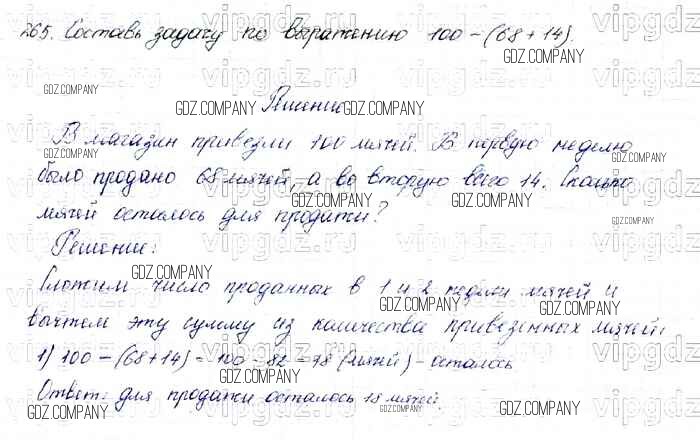 265. Составь задачу по выражению 100 - (68 + 14).
Решение
В магазин привезли 100 мячей. В первую неделю
было продано 68 мячей, а во вторую всего 14. Сколько
мячей осталось для продажи?
Решение:
Сложим число проданных в 1 и 2 недели мячей и
вычтем эту сумму из количества привезенных мячей:
1) 100 - (68 + 14) = 100 - 82 = 18 (мячей) - осталось
Ответ: для продажи осталось 18 мячей.